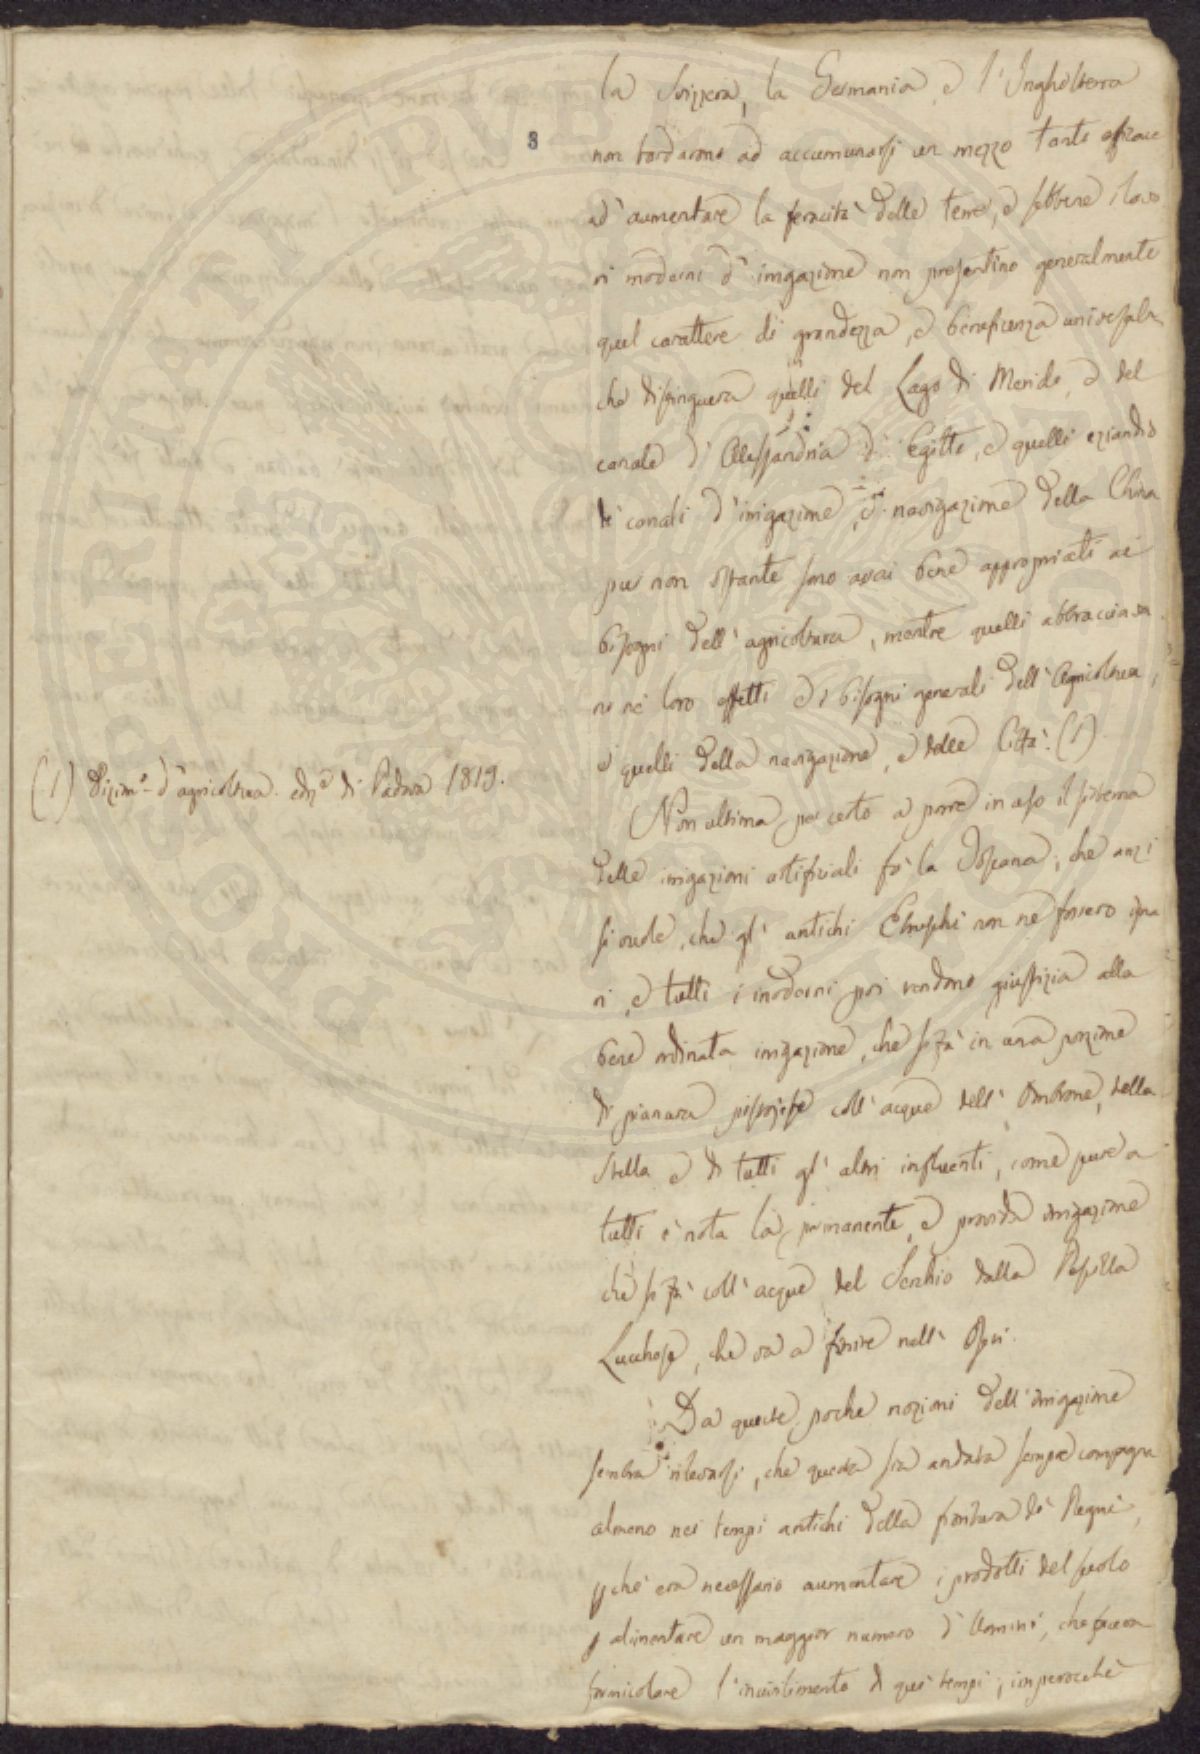 8
la Svizzera, la Germania, e l'Inghilterra
non tardarono ad accumunarsi un mezzo tanto efficace
ad aumentare la feracità delle terre, e sebbene i lavo
ri moderni d'irrigazione non presentino generalmente
quel carattere di grandezza, e beneficenza universale
che distingueva quelli del Lago di Meride, e del
canale d'Alessandria d'Egitto, e quelli eziandio
de' canali d'irrigazione, e navigazione della China
pur non ostante sono assai bene appropriati ai
bisogni dell'agricoltura, mentre quelli abbracciava
no ne' loro effetti e i bisogni generali dell'Agricoltura,
e quelli della navigazione, e delle Città. (1)
(1) Dizion.º d'agricoltura. edz.e di Padova 1819.
Non ultima per certo a porre in uso il sistema
delle irrigazioni artificiali fù la Toscana, che anzi
si vuole, che gl'antichi Etruschi non ne fossero igna
ri, e tutti i moderni poi rendono giustizia alla
bene ordinata irrigazione, che si fà in una porzione
di pianura pistojese coll'acque dell'Ombrone, della
Stella e di tutti gl'altri influenti, come pure a
tutti è nota la permanente, e provida irrigazione
che si fà coll'acque del Serchio dalla
Lucchese, che va a finire nell'
Da queste poche nozioni dell'irrigazione
sembra rilevarsi, che questa sia andata sempre compagna
almeno nei tempi antichi della floridezza de' Regni,
pchè era necessario aumentare i prodotti del suolo
p alimentare un maggior numero d'Uomini, che faceva
formicolare l'incivilimento di que' tempi, imperocchè